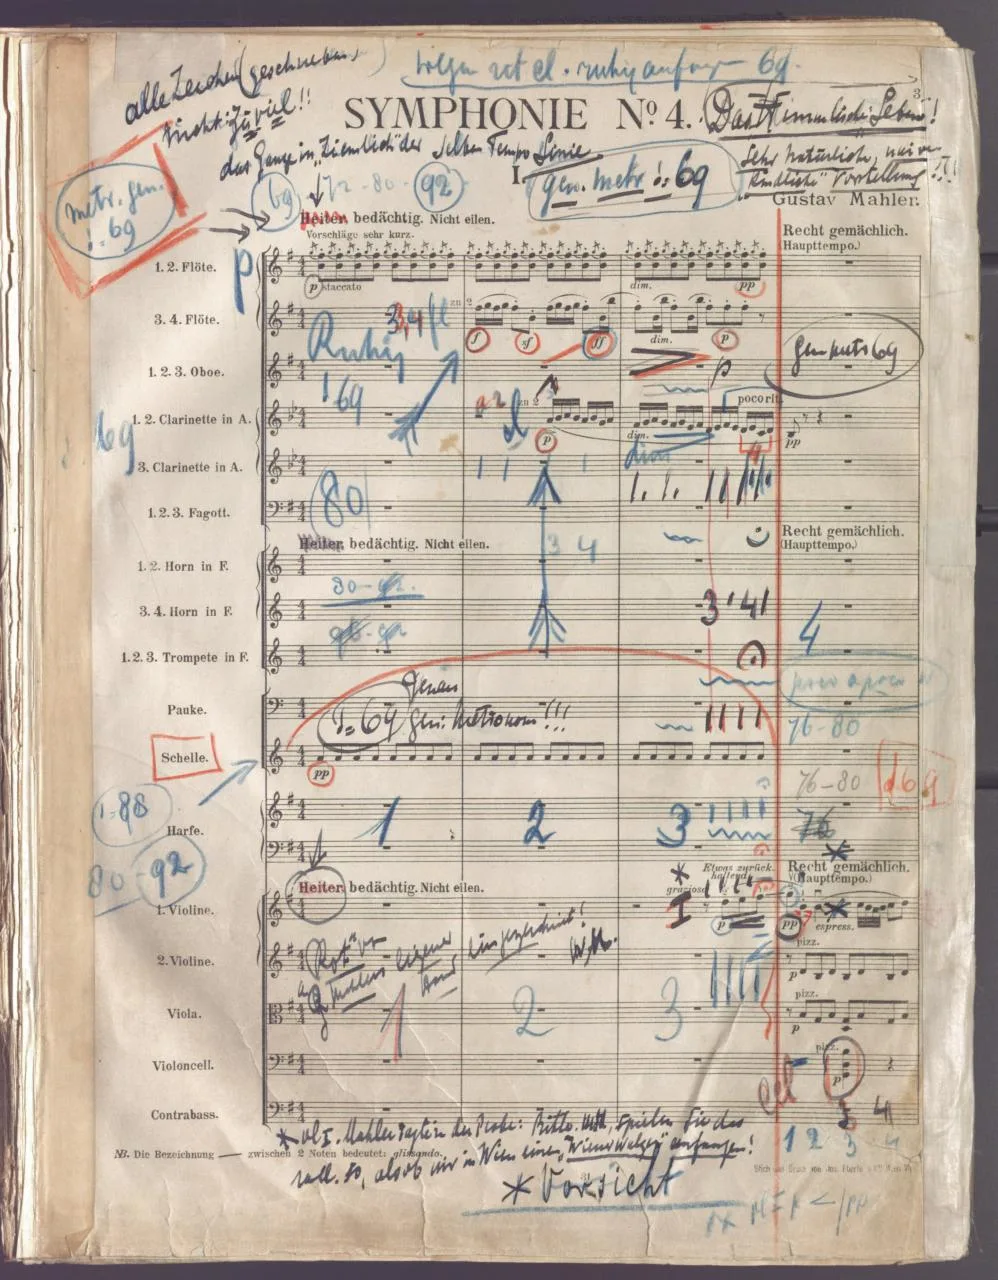 alle Zeichen (geschrieben)
nicht zu viel!!
ruhig anfangen 69.
3
SYMPHONIE No 4.
Das Himmlische Leben!
das Ganze in "Ziemlich" der selben Tempo Linie
Sehr natürlich, naive
"kindliche" Vorstellung!!
I.
gen. metr. 69
69 72-80-92
metr. gen.
69
Gustav Mahler.
Heiter, bedächtig. Nicht eilen.
Vorschläge sehr kurz.
Recht gemächlich.
(Haupttempo.)
p
1. 2. Flöte.
p staccato
dim.
pp
3. 4. Flöte.
3, 4 fl
zu 2
f
sf
ff
dim.
p
Ruhig
69
1. 2. 3. Oboe.
p
gen metr 69
69
1. 2. Clarinette in A.
a 2
zu 2
p
dim.
poco rit.
pp
3. Clarinette in A.
dim
4
80
1. 2. 3. Fagott.
Heiter, bedächtig. Nicht eilen.
3 4
Recht gemächlich.
(Haupttempo.)
1. 2. Horn in F.
80-92.
3. 4. Horn in F.
3 4
4
1. 2. 3. Trompete in F.
poco a poco
Pauke.
Genau
69 gen: Metronom!!!
76-80
Schelle.
pp
76-80
69
88
Harfe.
1 2 3
76
80-92
Heiter, bedächtig. Nicht eilen.
Etwas zurückhaltend.
grazioso
Recht gemächlich.
(Haupttempo.)
1. Violine.
p
pp
espress.
2. Violine.
"Rot" von
Mahlers eigener
Hand
eingezeichnet!
pizz.
p
Viola.
1 2 3
pizz.
p
Violoncell.
pizz.
p
Cel
Contrabass.
4
* vl I. Mahler sagte in der Probe: Bitte, spielen Sie das
rall. so, als ob wir in Wien einen "Wienerwalzer" anfangen!
1 2 3 4
NB. Die Bezeichnung — zwischen 2 Noten bedeutet: glissando.
Stich und Druck von Jos. Eberle
* Vorsicht